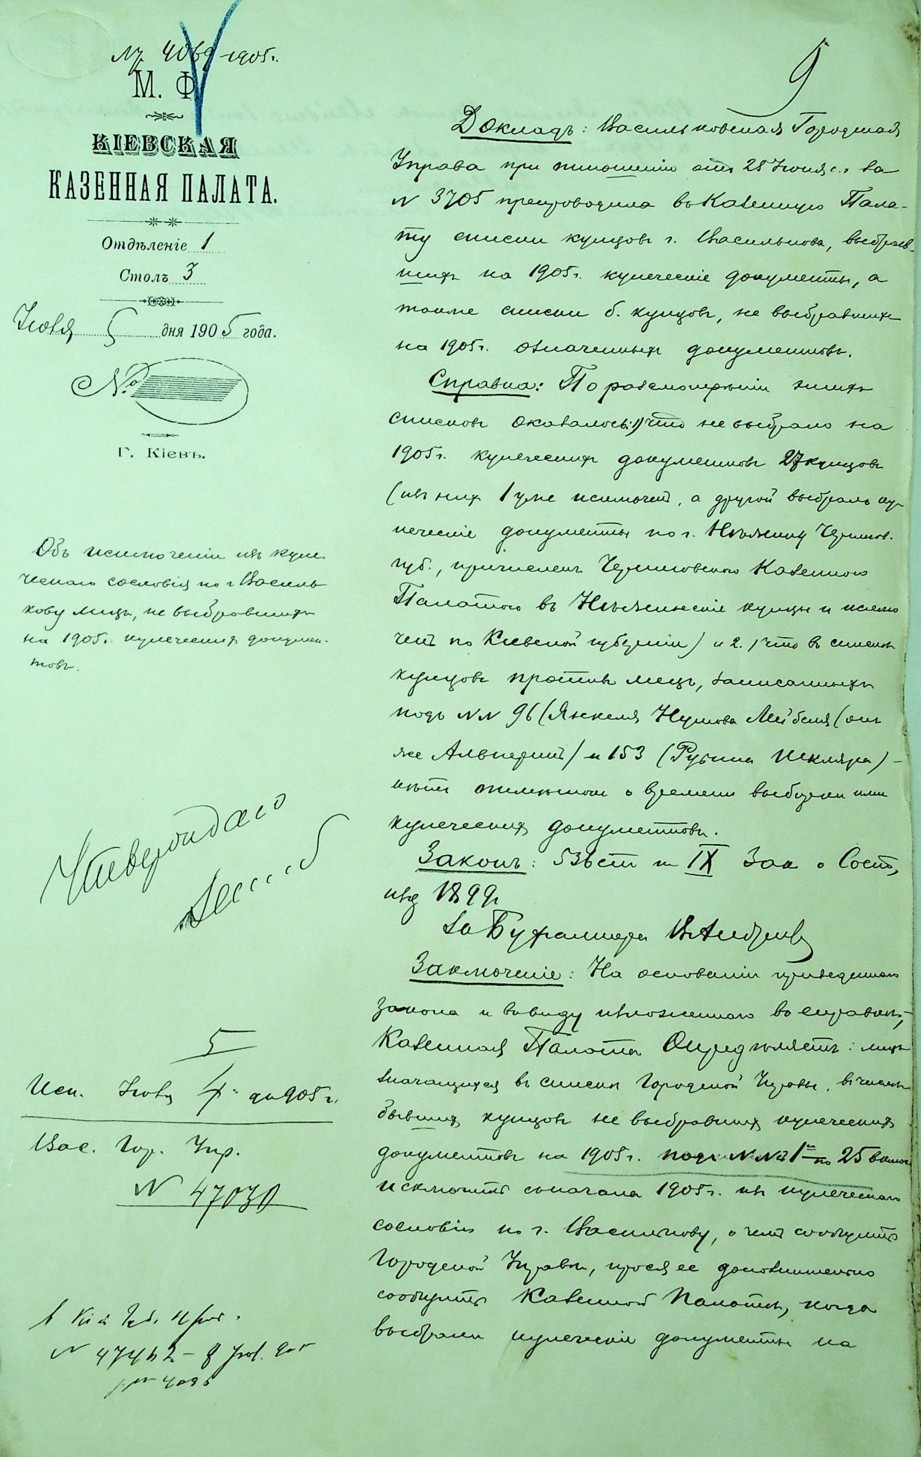 № 4069 1905г.
М. Ф.
КІЕВСКАЯ
КАЗЕННАЯ ПАЛАТА.
Отдѣленіе 1
Столъ 3
Іюля 5 дня 1905 года.
№
Г. Кіевъ.
Объ исключеніи изъ купе
ческаго сословія по г. Василь
кову лицъ, не выбравшихъ
на 1905г. купеческихъ докумен-
товъ.
Утверждаю
5
Исп. Іюля 1905г.
Вас. Гор. Упр.
N 47030
N 47462
9
Докладъ: Васильковская Городская
Управа при отношеніи отъ 28 Іюня с.г. за
N 3705 препроводила въ Казенную Пала-
ту списки купцовъ г. Василькова, выбрав-
шихъ на 1905г. купеческіе документы, а
также списки б. купцовъ, не выбравшихъ
на 1905г. означенныхъ документовъ.
Справка: По разсмотрѣніи этихъ
списковъ оказалось: 1) что не выбрало на
1905г. купеческихъ документовъ 27 купцовъ
(изъ нихъ 1 уже исключенъ, а другой выбралъ ку-
печескіе документы по г. Нѣжину Чернигов.
губ., причисленъ Черниговскою Казенною
Палатою въ Нѣжинскіе купцы и исклю
ченъ по Кіевской губерніи) и 2) что въ спискѣ
купцовъ противъ лицъ, записанныхъ
подъ NN 96 (Янкеля Лейбеля (онъ
же Альперинъ) и 153 (Рубина Шкляра) -
нѣтъ отмѣтки о времени выборки ими
купеческихъ документовъ.
Законъ: 536 ст. т. IX Зак. о Сост.,
изд. 1899г.
За Бухгалтера
Заключеніе: На основаніи приведеннаго
закона и въ виду изложеннаго въ справкѣ,
Казенная Палата Опредѣляетъ: лицъ
значащихся въ спискѣ Городской Управы, въ числѣ
бывшихъ купцовъ не выбравшихъ купеческихъ
документовъ на 1905г. подъ NN 1 по 25 включ.
исключить съ начала 1905г. изъ купеческаго
сословія по г. Василькову, о чемъ сообщить
Городской Управѣ, прося ее дополнительно
сообщить Казенной Палатѣ, когда
выбрали купеческіе документы на